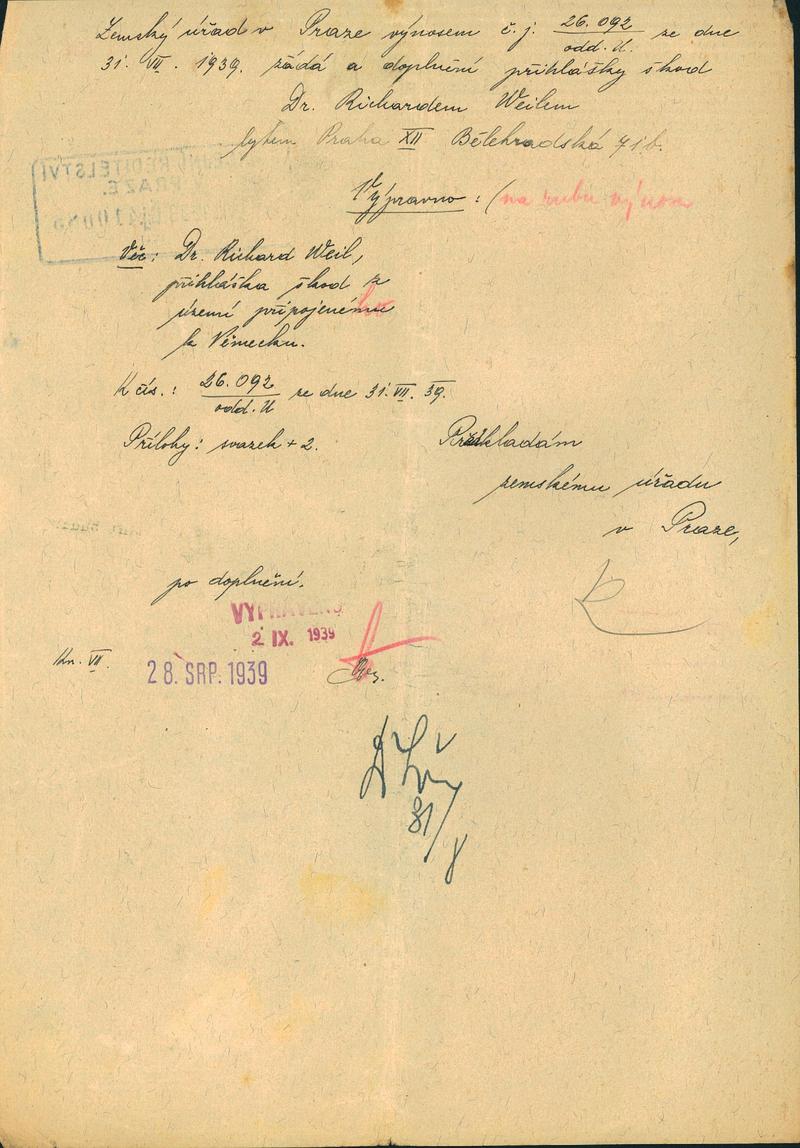 Zemský úřad v Praze výnosem č.j. 26.092 ze dne
odd. U.
31. VII. 1939. žádá a doplnění přihlášky škod
Dr. Richardem Weilem
bytem Praha XII Bělehradská 71b.
Výpravno: (na rubu výnosu
Věc: Dr. Richard Weil,
přihláška škod z
území připojenému ho
k Německu.
K čís.: 26.092 ze dne 31. VII. 39.
odd. U
Přílohy: svazek + 2.
Předkládám
zemskému úřadu
v Praze,
po doplnění.
VYPRAVENO
2 IX. 1939
Kn. VII.
28. SRP. 1939
31/8